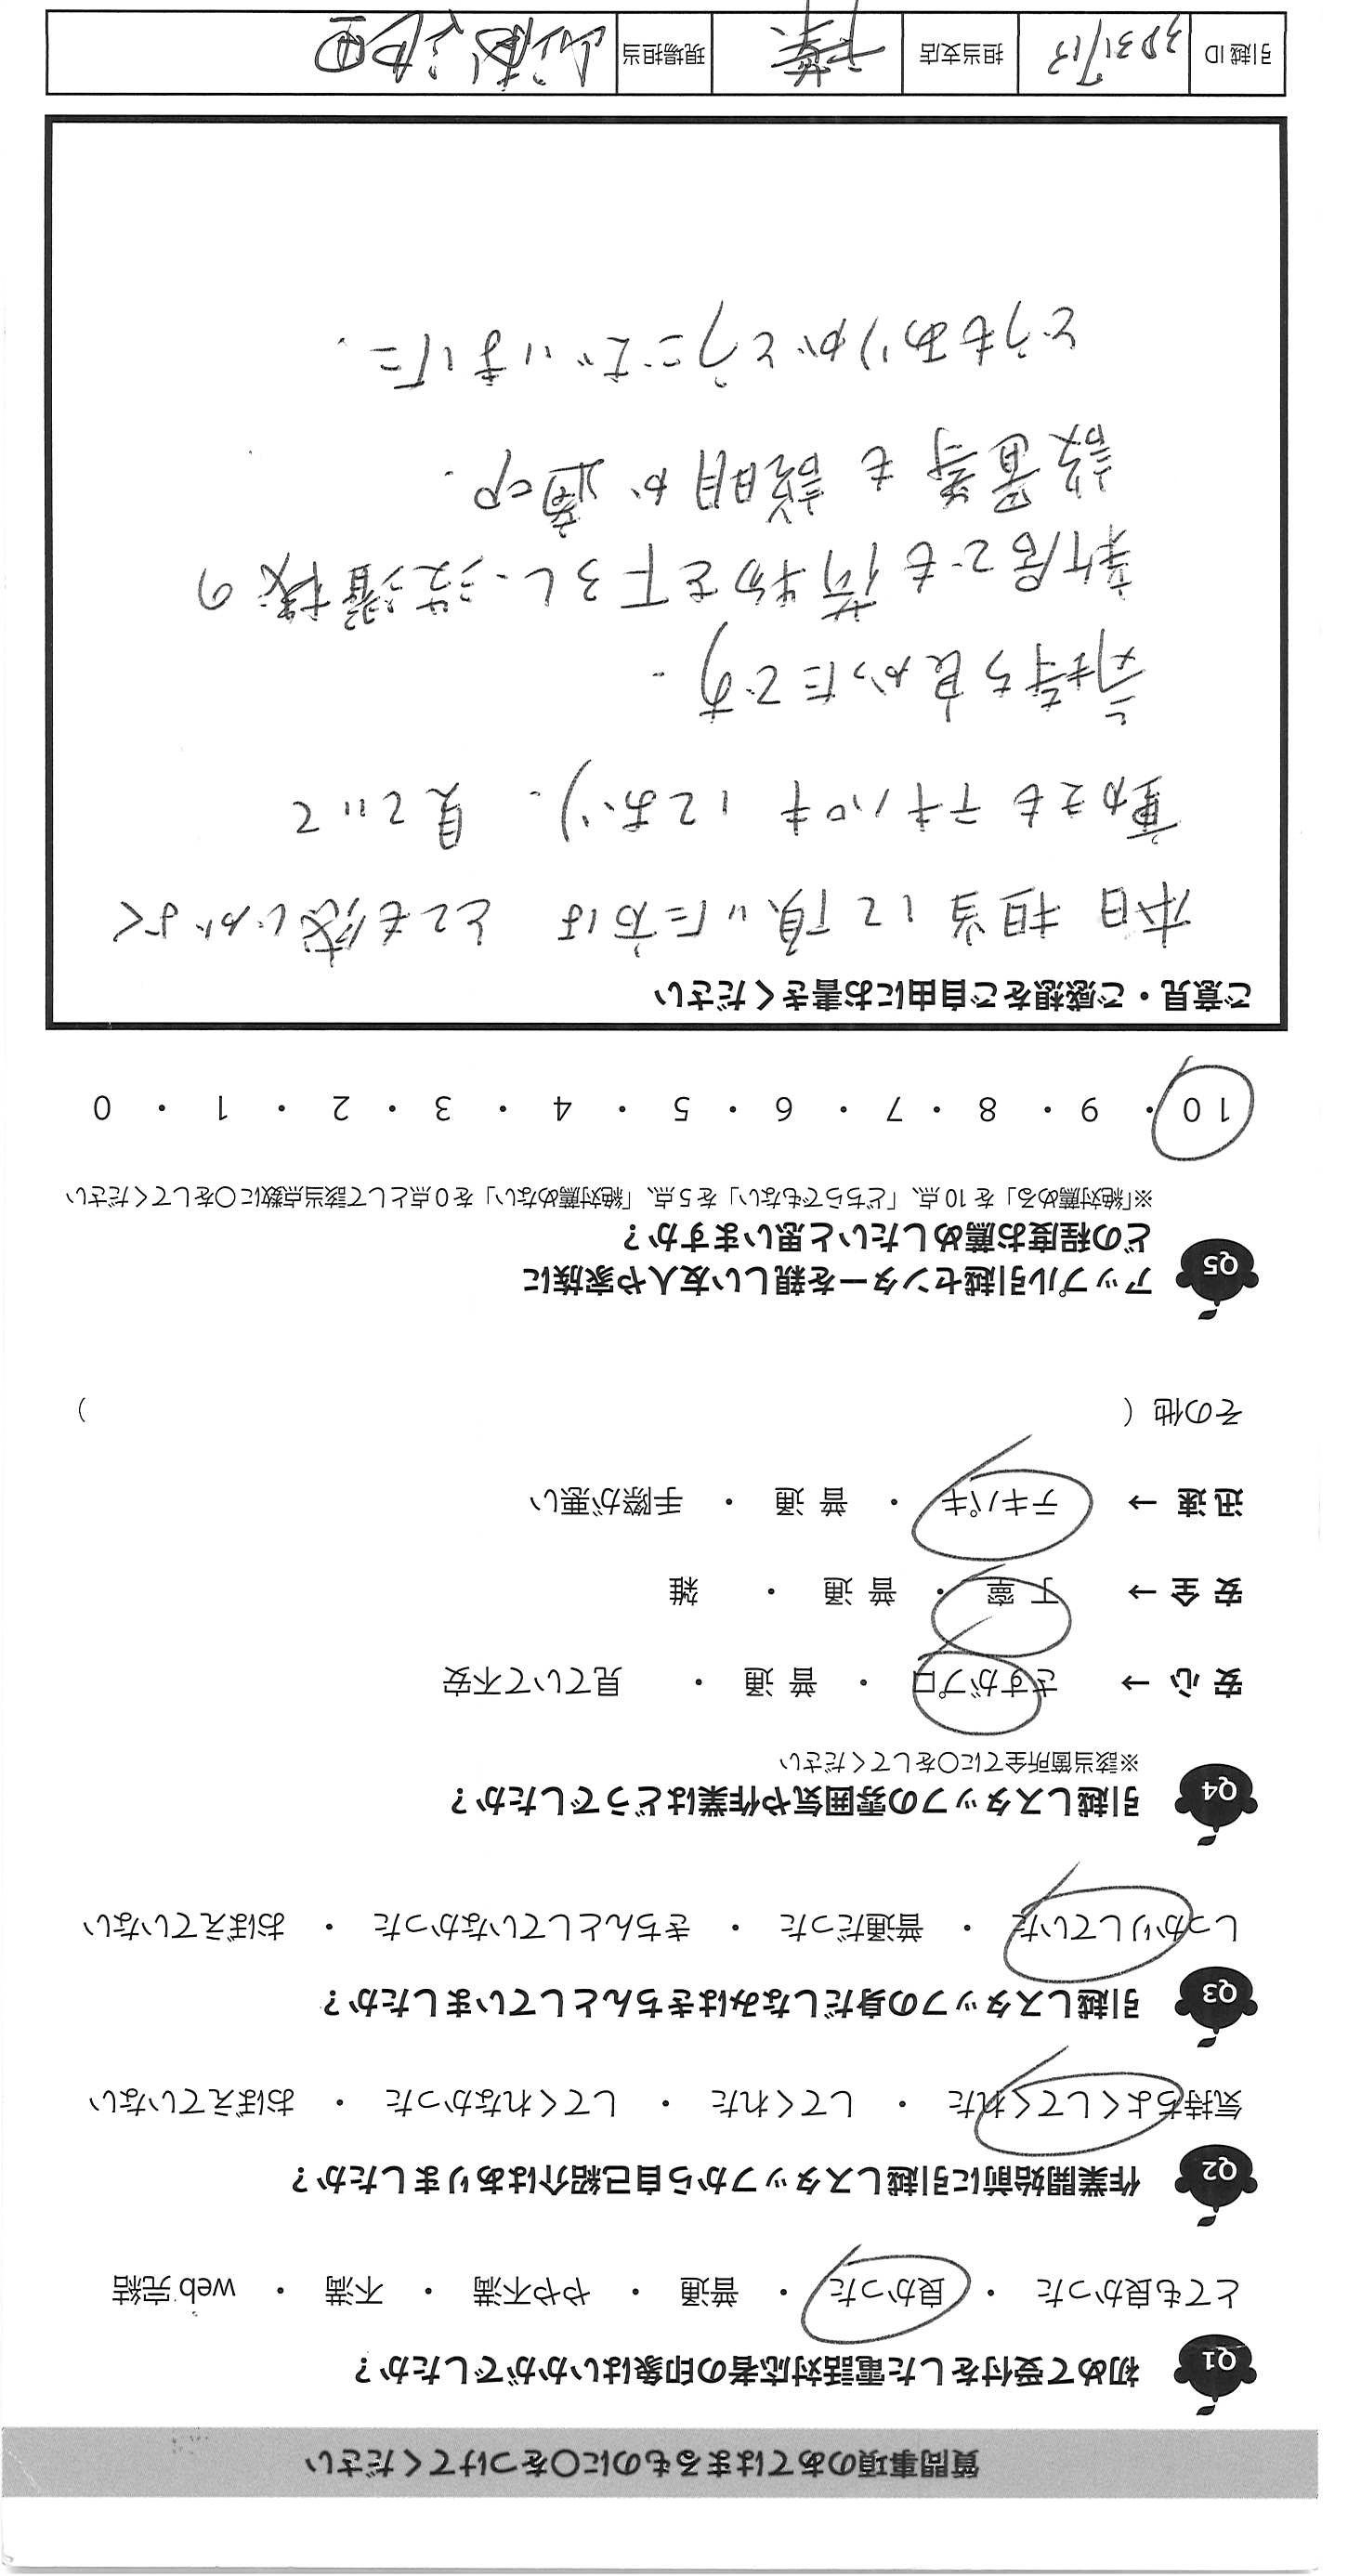 質問事項のあてはまるものに〇をつけてください
Q1 初めて受付をした電話対応者の印象はいかがでしたか？
とても良かった ・ 良かった ・ 普通 ・ やや不満 ・ 不満 ・ web 完結
Q2 作業開始前に引越しスタッフから自己紹介はありましたか？
気持ちよくしてくれた ・ してくれた ・ してくれなかった ・ おぼえていない
Q3 引越しスタッフの身だしなみはきちんとしていましたか？
しっかりしていた ・ 普通だった ・ きちんとしていなかった ・ おぼえていない
Q4 引越しスタッフの雰囲気や作業はどうでしたか？
※該当箇所全てに〇をしてください
安 心 → さすがプロ ・ 普 通 ・ 見ていて不安
安 全 → 丁 寧 ・ 普 通 ・ 雑
迅 速 → テキパキ ・ 普 通 ・ 手際が悪い
その他（ ）
Q5 アップル引越センターを親しい友人や家族に
どの程度お薦めしたいと思いますか？
※「絶対薦める」を 10 点、「どちらでもない」を 5 点、「絶対薦めない」を 0 点として該当点数に〇をしてください
10 ・ 9 ・ 8 ・ 7 ・ 6 ・ 5 ・ 4 ・ 3 ・ 2 ・ 1 ・ 0
ご意見・ご感想をご自由にお書きください
本日担当して頂いた方は とても感じがよく
動きもテキパキしており、見ていて
気持ち良かったです.
新居でも荷物を下ろし、洗濯機の
設置等も説明が適切.
どうもありがとうございました.
引越 ID 担当支店 千葉 現場担当